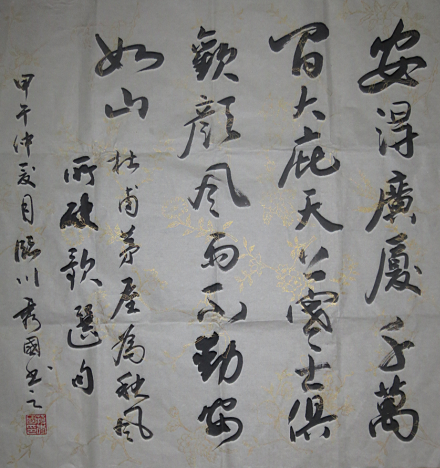 安得廣廈千萬
間大庇天下寒士俱
歡顏風雨不動安
如山
杜甫茅屋為秋風
所破歌選句
甲午仲夏月臨川秀國書之